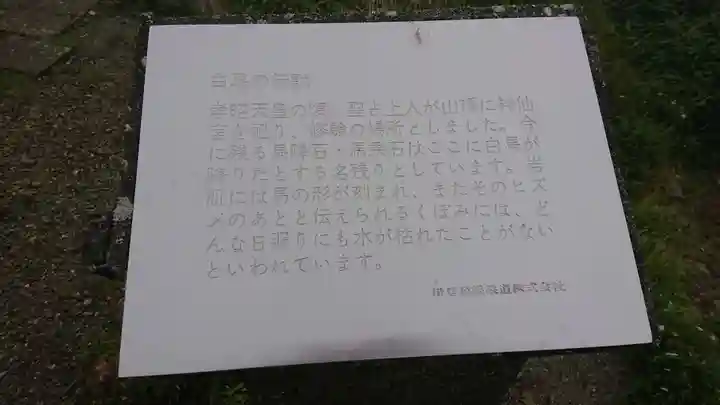 白馬の伝説
孝昭天皇の頃、聖と上人が山頂に神仙
宮を祀り、修験の場所としました。今
に残る馬降石・馬乗石はここに白馬が
降りたとする名残りとしています。岩
肌には馬の形が刻まれ、またそのヒズ
メのあとと伝えられるくぼみには、ど
んな日照りにも水が枯れたことがない
といわれています。
株式会社